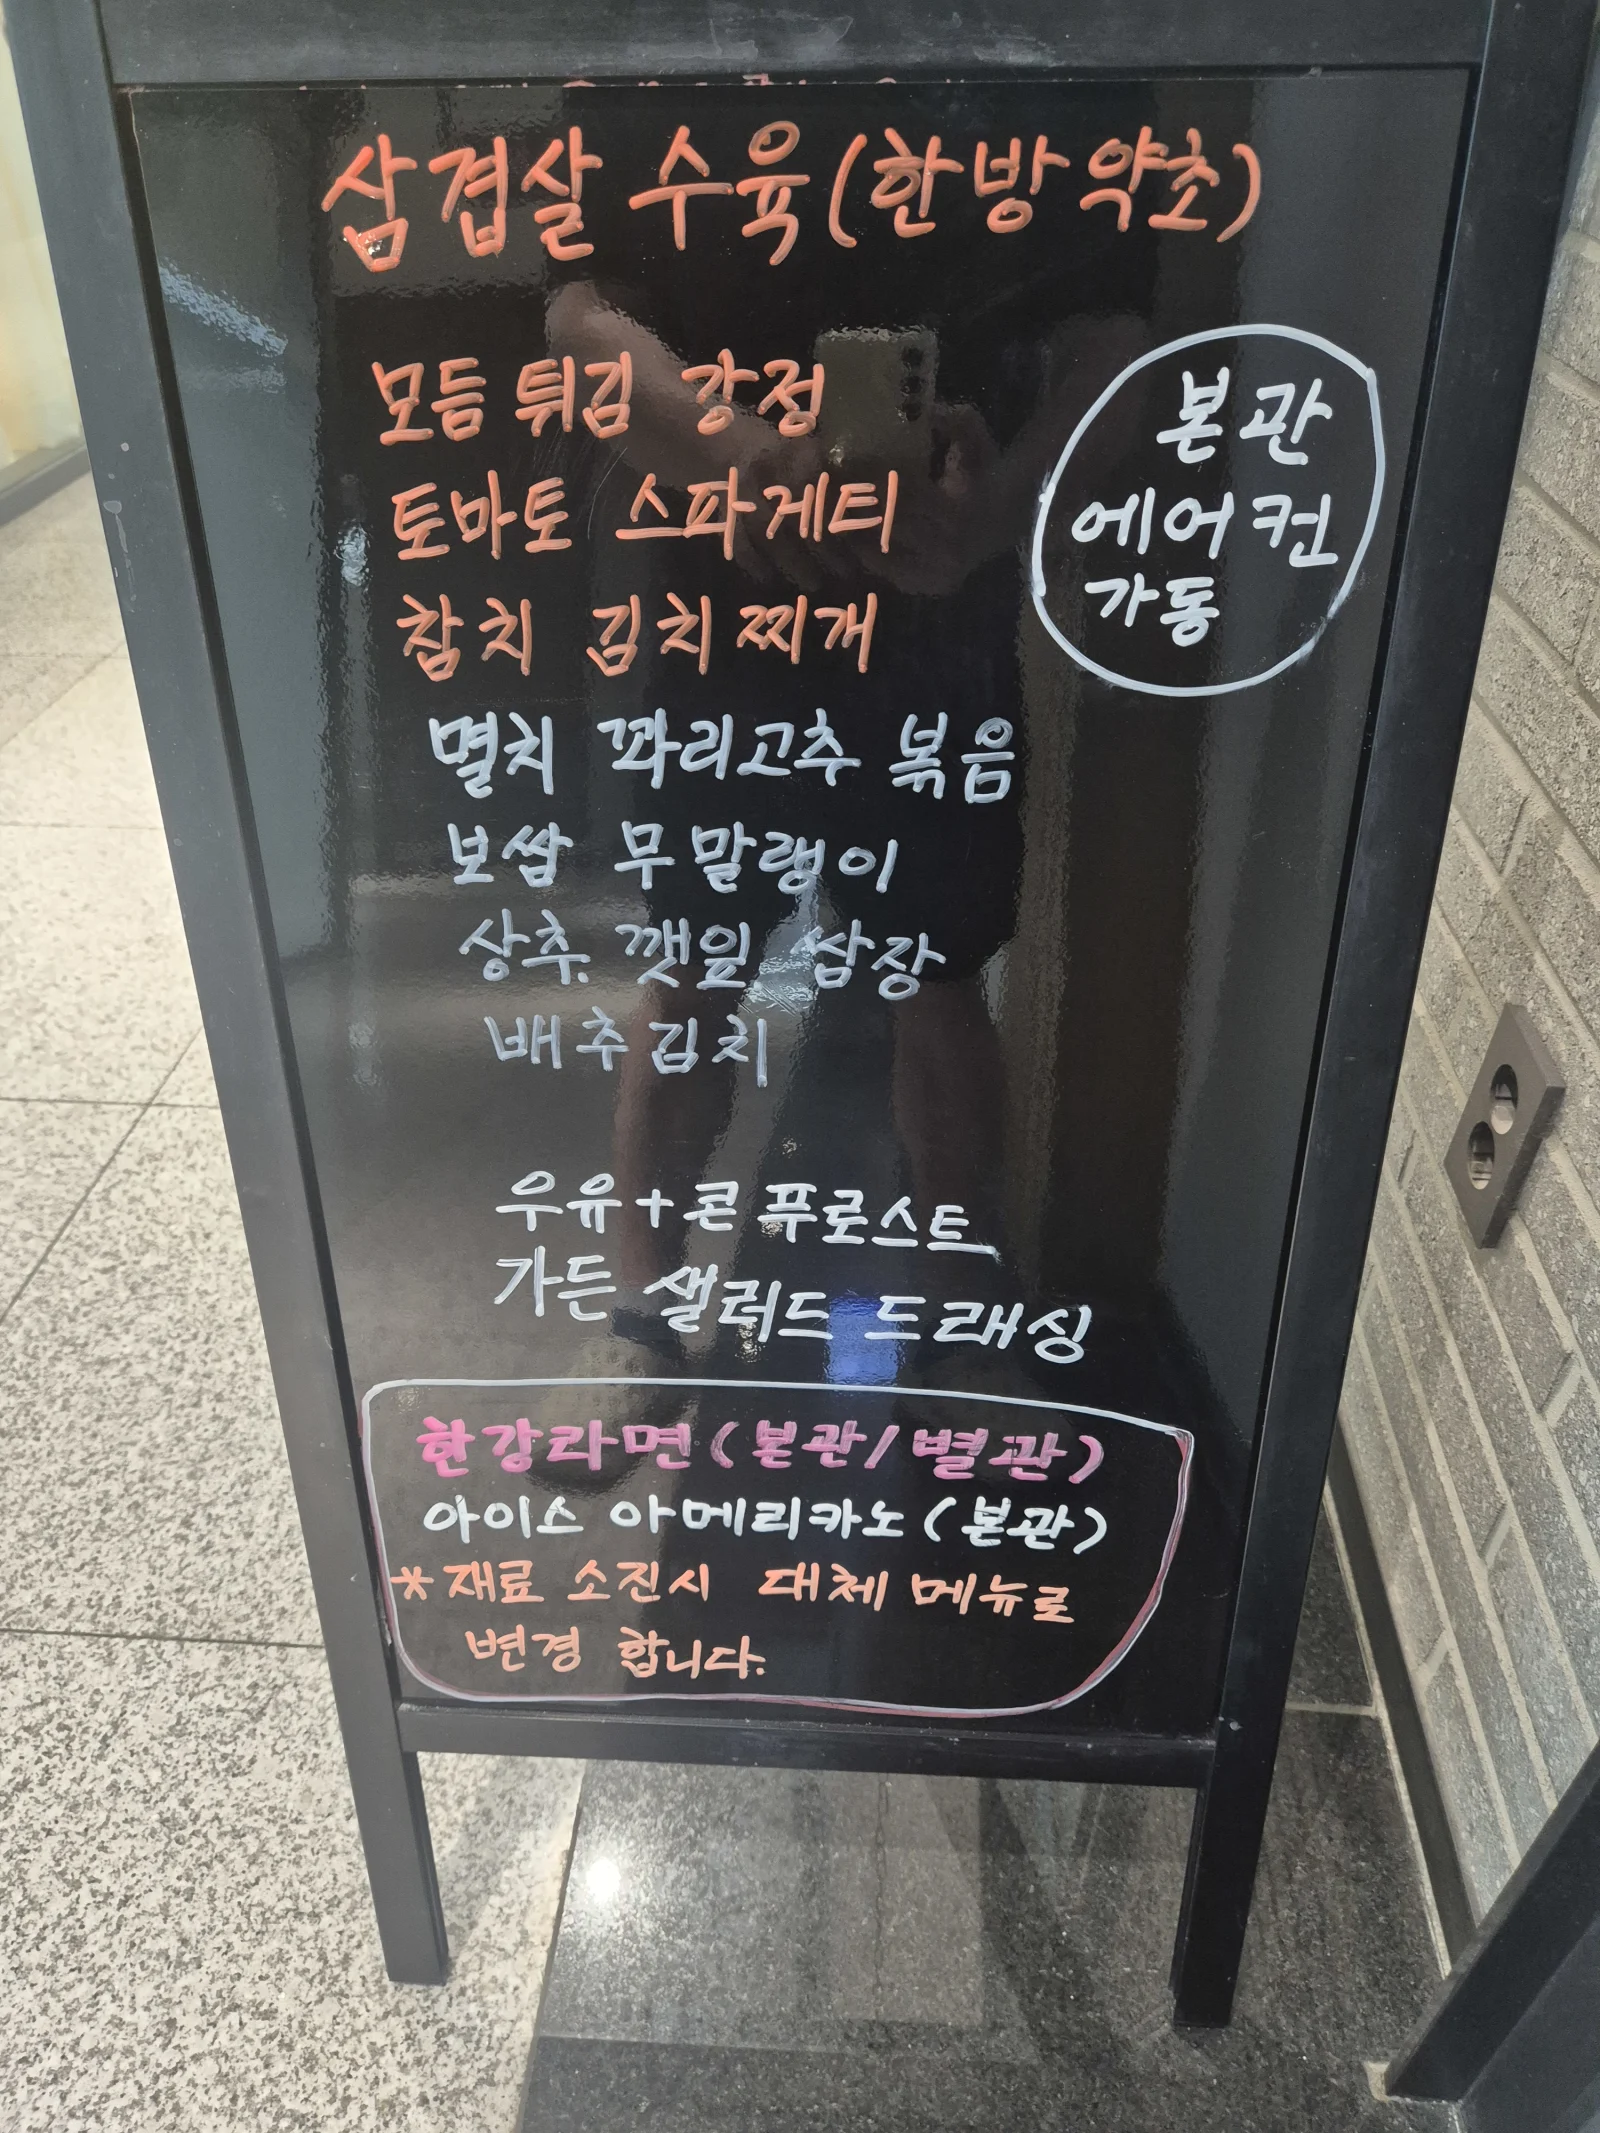 삼겹살 수육(한방약초)
모듬 튀김 강정
토마토 스파게티
참치 김치찌개
본관
에어컨
가동
멸치 꽈리고추 볶음
보쌈 무말랭이
상추. 깻잎. 쌈장
배추김치
우유+콘푸로스트
가든 샐러드 드래싱
한강라면(본관/별관)
아이스 아메리카노(본관)
*재료 소진시 대체 메뉴로
변경 합니다.